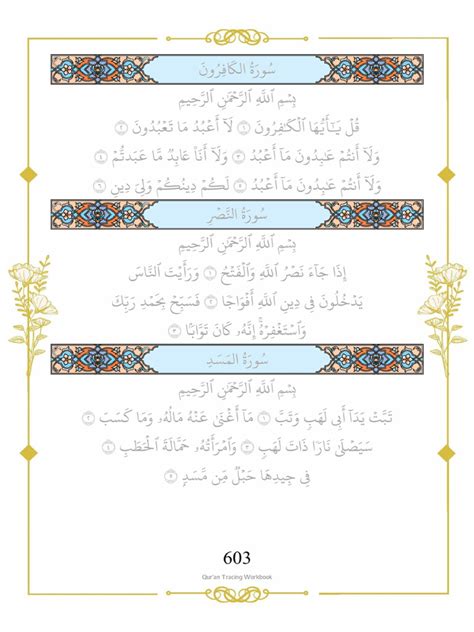 سُورَةُ الكَافِرُونَ
بِسْمِ ٱللَّهِ ٱلرَّحْمَٰنِ ٱلرَّحِيمِ
قُلْ يَـٰٓأَيُّهَا ٱلْكَـٰفِرُونَ ١ لَآ أَعْبُدُ مَا تَعْبُدُونَ ٢
وَلَآ أَنتُمْ عَـٰبِدُونَ مَآ أَعْبُدُ ٣ وَلَآ أَنَا۠ عَابِدٌ مَّا عَبَدتُّمْ ٤
وَلَآ أَنتُمْ عَـٰبِدُونَ مَآ أَعْبُدُ ٥ لَكُمْ دِينُكُمْ وَلِىَ دِينِ ٦
سُورَةُ النَّصْرِ
بِسْمِ ٱللَّهِ ٱلرَّحْمَٰنِ ٱلرَّحِيمِ
إِذَا جَآءَ نَصْرُ ٱللَّهِ وَٱلْفَتْحُ ١ وَرَأَيْتَ ٱلنَّاسَ
يَدْخُلُونَ فِى دِينِ ٱللَّهِ أَفْوَاجًا ٢ فَسَبِّحْ بِحَمْدِ رَبِّكَ
وَٱسْتَغْفِرْهُ ۚ إِنَّهُۥ كَانَ تَوَّابًۢا ٣
سُورَةُ المَسَدِ
بِسْمِ ٱللَّهِ ٱلرَّحْمَٰنِ ٱلرَّحِيمِ
تَبَّتْ يَدَآ أَبِى لَهَبٍ وَتَبَّ ١ مَآ أَغْنَىٰ عَنْهُ مَالُهُۥ وَمَا كَسَبَ ٢
سَيَصْلَىٰ نَارًا ذَاتَ لَهَبٍ ٣ وَٱمْرَأَتُهُۥ حَمَّالَةَ ٱلْحَطَبِ ٤
فِى جِيدِهَا حَبْلٌ مِّن مَّسَدٍۭ ٥
603
Qur'an Tracing Workbook